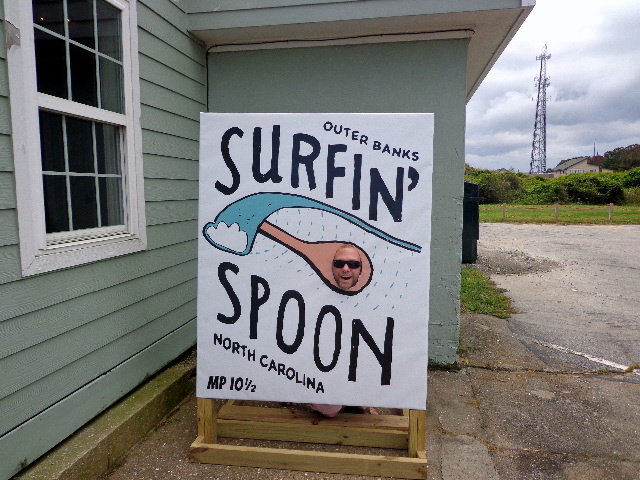 OUTER BANKS
SURFIN'
SPOON
NORTH CAROLINA
MP 10½